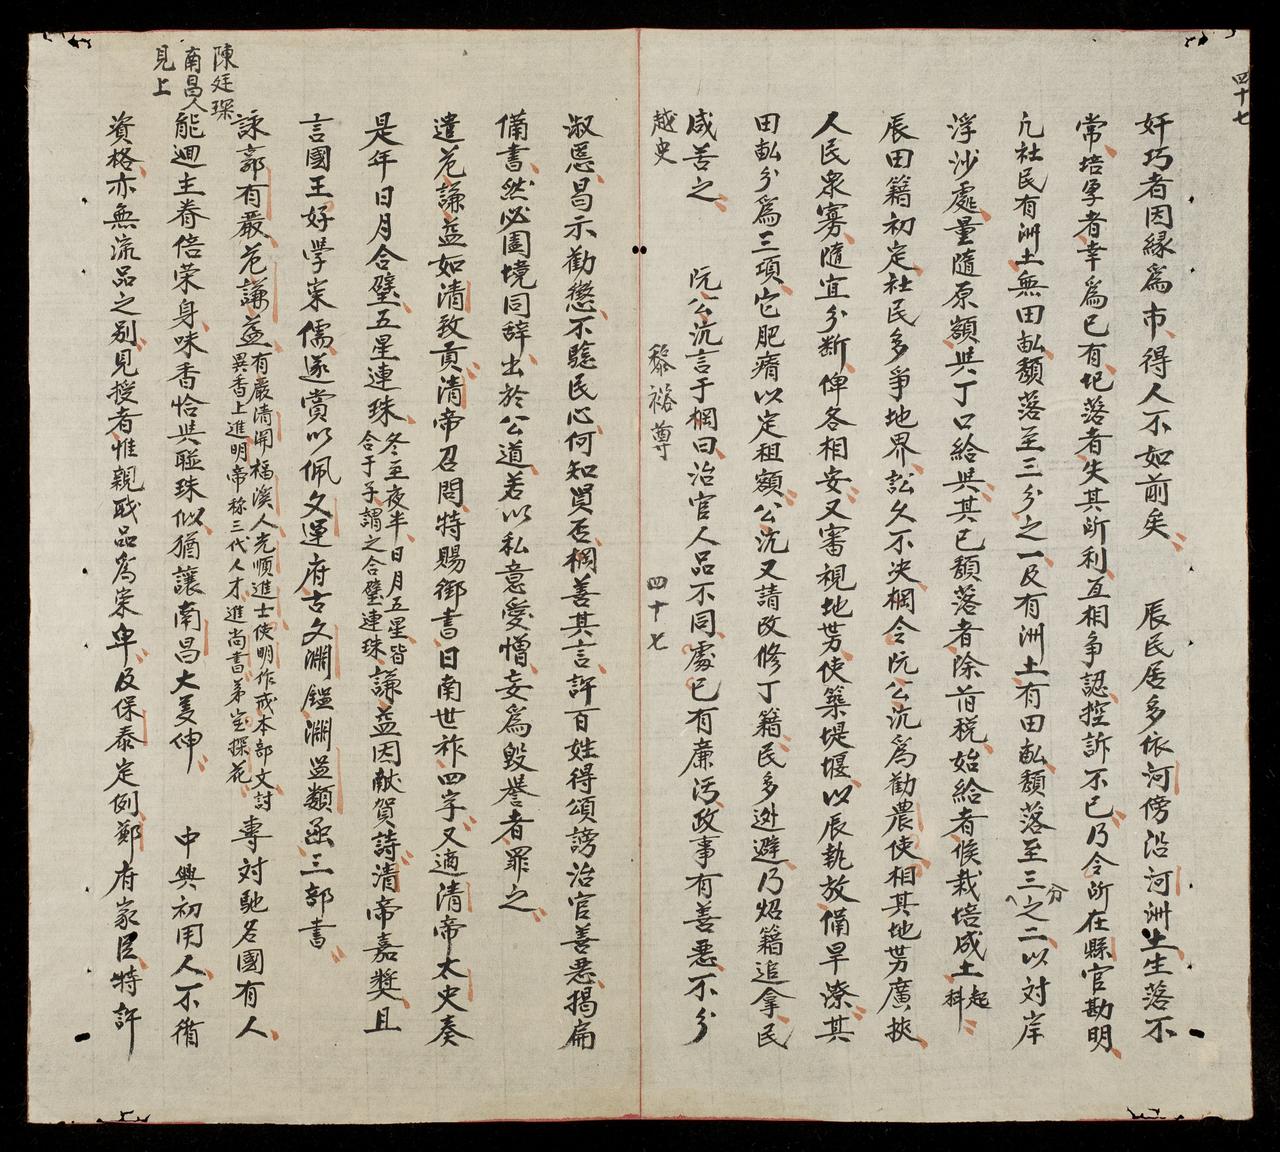 四十七
奸巧者因緣爲市得人不如前矣 辰民居多依河傍沿河洲土生落不
常培孕者幸爲已有圮落者失其所利互相争認控訴不已乃令所在縣官勘明
凢社民有洲土無田畝頹落至三分之一及有洲土有田畝頹落至三分之二以対岸
浮沙處量隨原額與丁口給與其已頹落者除昔税始給者候栽培成土起科
辰田籍初定社民多爭地界訟久不决棡令阮公沆爲勸農使相其地势廣挾
人民衆寡隨宜分断俾各相安又審視地势使築堤堰以辰執放俻旱潦其
田畝分爲三項定肥瘠以定租額公沆又請改修丁籍民多迯避乃炤籍追拿民
咸苦之 阮公沆言于棡曰治官人品不同處已有廉污政事有善悪不分
越史 黎裕尊 四十七
淑慝昌示勸懲不聽民心何知賢否棡善其言許百姓得頌謗治官善悪揭扁
俻書然必闔境同辞出於公道若以私意愛憎妄爲毀譽者罪之
遣范謙益如清致貢清帝召問特賜御書日南世祚四字又適清帝太史奏
是年日月合璧五星連珠冬至夜半日月五星皆合于子謂之合璧連珠謙益因献賀詩清帝嘉奬且
言國王好学崇儒遂賞以佩文運府古文渊鑑渊鑑類函三部書
詠郭有嚴范謙益有嚴清閒福溪人光順進士使明作戒本部文討異香上進明帝称三代人才進尚書弟宜探花専対馳名國有人
能迴主眷倍荣身味香恰與聯珠似猶讓南昌大美伸 中興初用人不循
資格亦無流品之别見授者惟親職品爲崇卑及保泰定例鄭府家臣特許
陳廷琛
南昌人
見上